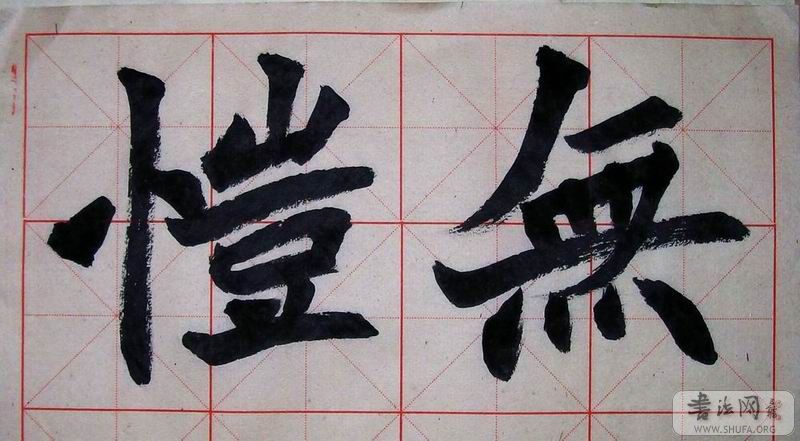 無愷
書法网
WWW.SHUFA.ORG